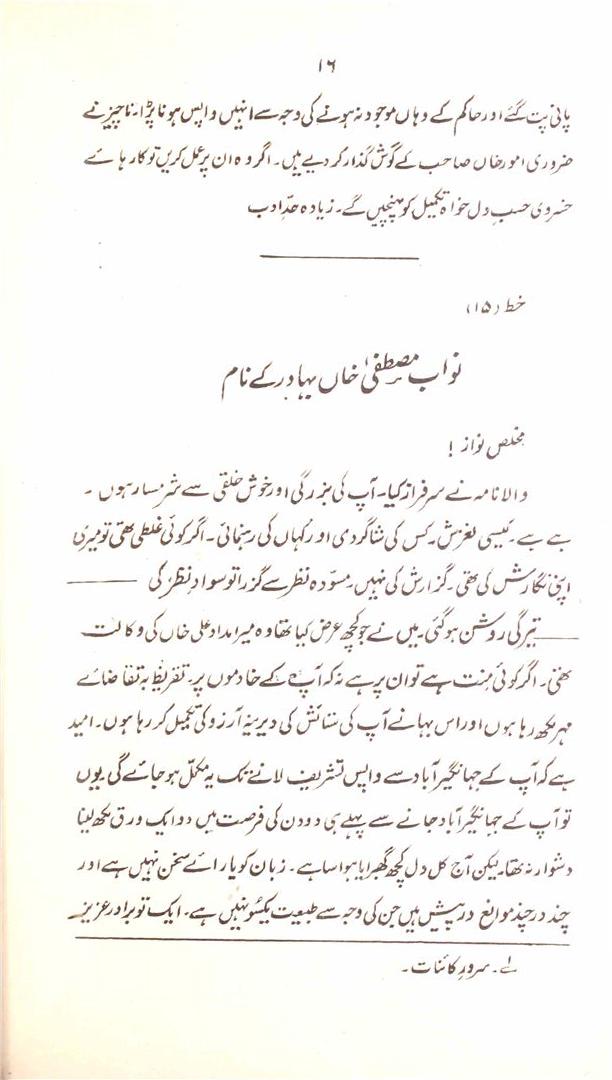 ۱۶
پانی پت گئے اور حاکم کے وہاں موجود نہ ہونے کی وجہ سے انہیں واپس ہونا پڑا۔ ناچیز نے
ضروری امور خاں صاحب کے گوش گذار کر دیے ہیں۔ اگر وہ ان پر عمل کریں تو کار ہائے
خسروی حسبِ دل خواہ تکمیل کو پہنچیں گے۔ زیادہ حدِّ ادب
خط (۱۵)
نواب مصطفیٰ خاں بہادر کے نام
مخلص نواز!
والا نامہ نے سرفراز کیا۔ آپ کی بزرگی اور خوش خلقی سے شرمسار ہوں ۔
ہے ہے۔ کیسی لغزش۔ کس کی شاگردی اور کہاں کی رہنمائی۔ اگر کوئی غلطی تھی تو میری
اپنی نگارش کی تھی۔ گزارش کی نہیں۔ مسوّدہ نظر سے گزرا تو سوادِ نظر کی ——
——تیرگی روشن ہو گئی۔ میں نے جو کچھ عرض کیا تھا وہ میر امداد علی خاں کی وکالت
تھی۔ اگر کوئی منت ہے تو ان پر ہے نہ کہ آپ کے خادموں پر۔ تقریظ بہ تقاضائے
مہر لکھ رہا ہوں اور اس بہانے آپ کی ستائش کی دیرینہ آرزو کی تکمیل کر رہا ہوں۔ امید
ہے کہ آپ کے جہانگیر آباد سے واپس تشریف لانے تک یہ مکمل ہو جائے گی یوں
تو آپ کے جہانگیر آباد جانے سے پہلے ہی دو دن کی فرصت میں دو ایک ورق لکھ لینا
دشوار نہ تھا۔ لیکن آج کل دل کچھ گھبرایا ہوا سا ہے۔ زبان کو یارائے سخن نہیں ہے اور
چند در چند موانع درپیش ہیں جن کی وجہ سے طبیعت یکسو نہیں ہے۔ ایک تو برادر عزیز
لے۔ سرورِ کائنات۔